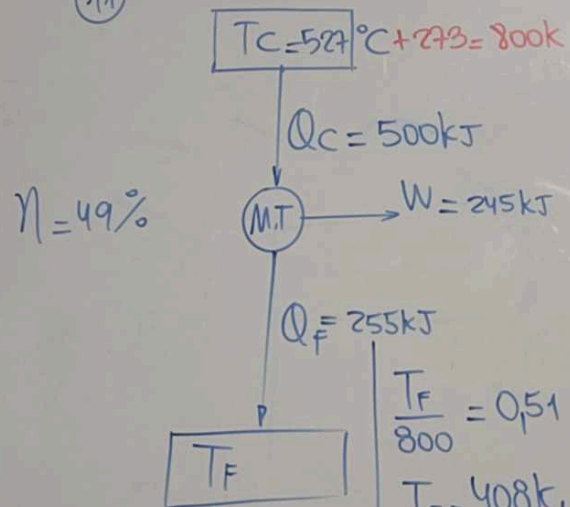 TC=527°C+273=800k
QC=500kJ
η=49%
M.T
W=245kJ
QF=255kJ
TF/800 = 0,51
TF
408k